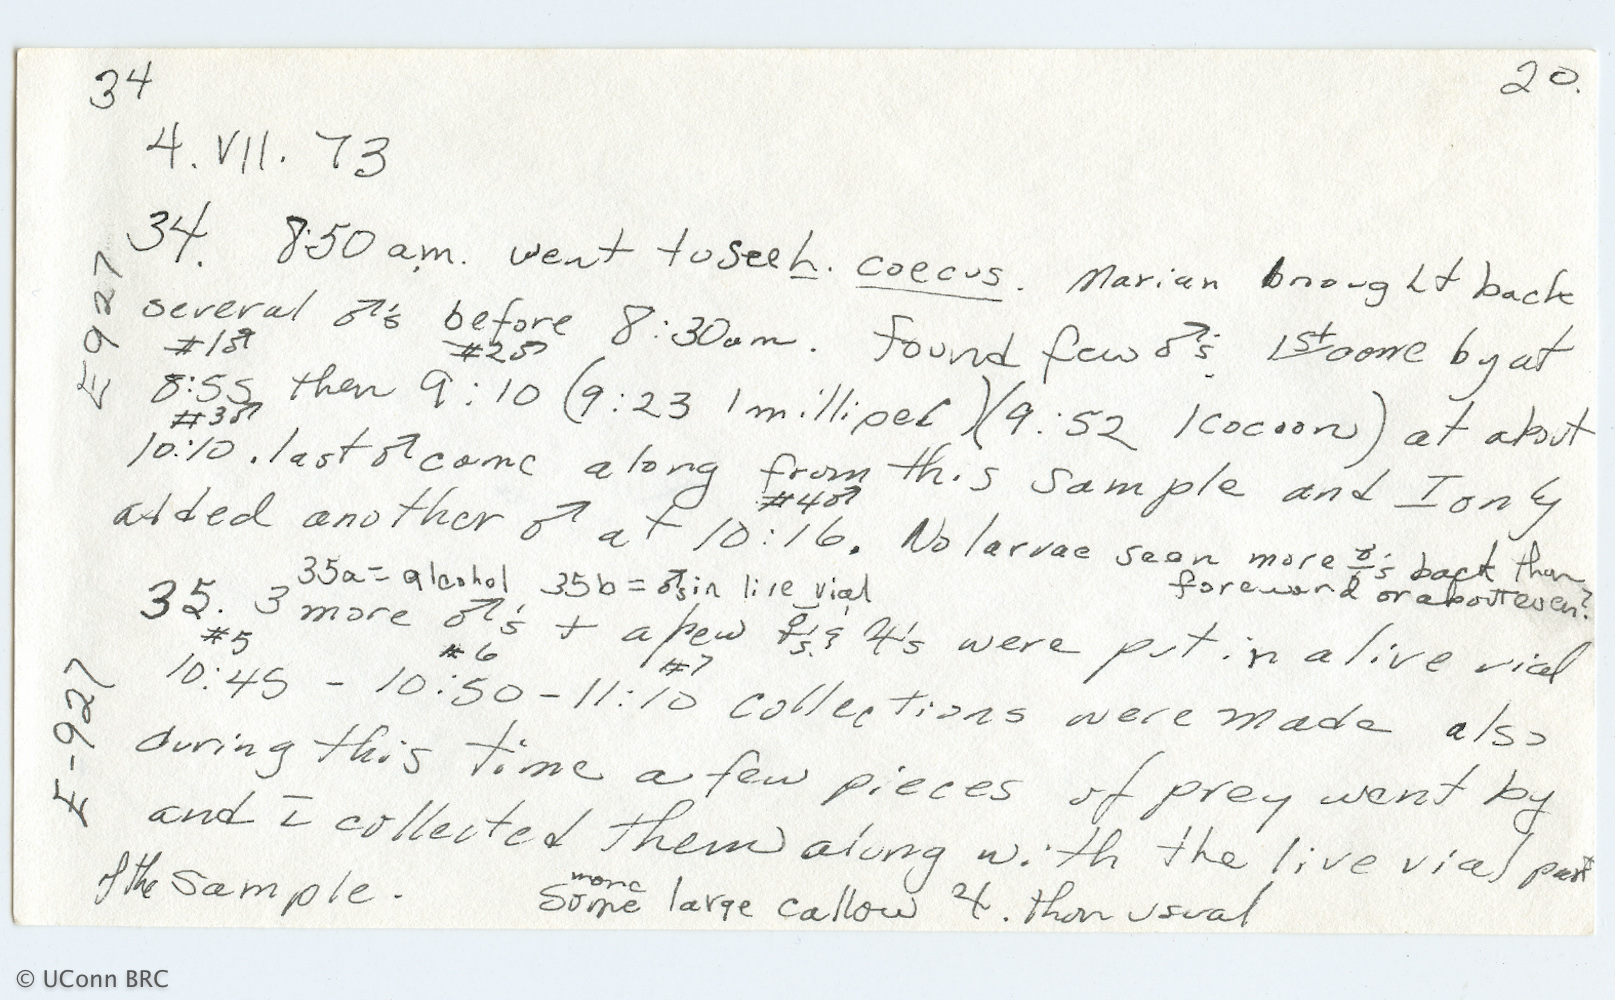 34
20.
4. VII. 73
E 927
34. 8:50 am. went to see L. coecus. Marian brought back
several ♂'s before 8:30am. Found few ♂'s. 1st come by at
#1♂ #2♂
8:55 then 9:10 (9:23 1 milliped) (9:52 1 cocoon) at about
#3♂
10:10. last ♂ came along from this sample and I only
#4♂
added another ♂ at 10:16. No larvae seen more back than
foreword or about even?
35a = alcohol 35b = ♂s in live vial
35. 3 more ♂'s + a few & 4's were put in a live vial
#5 #6 #7
10:45 - 10:50 - 11:10 collections were made also
E-927
during this time a few pieces of prey went by
and I collected them along with the live vial part
of the sample.
more
Some large callow . than usual
© UConn BRC